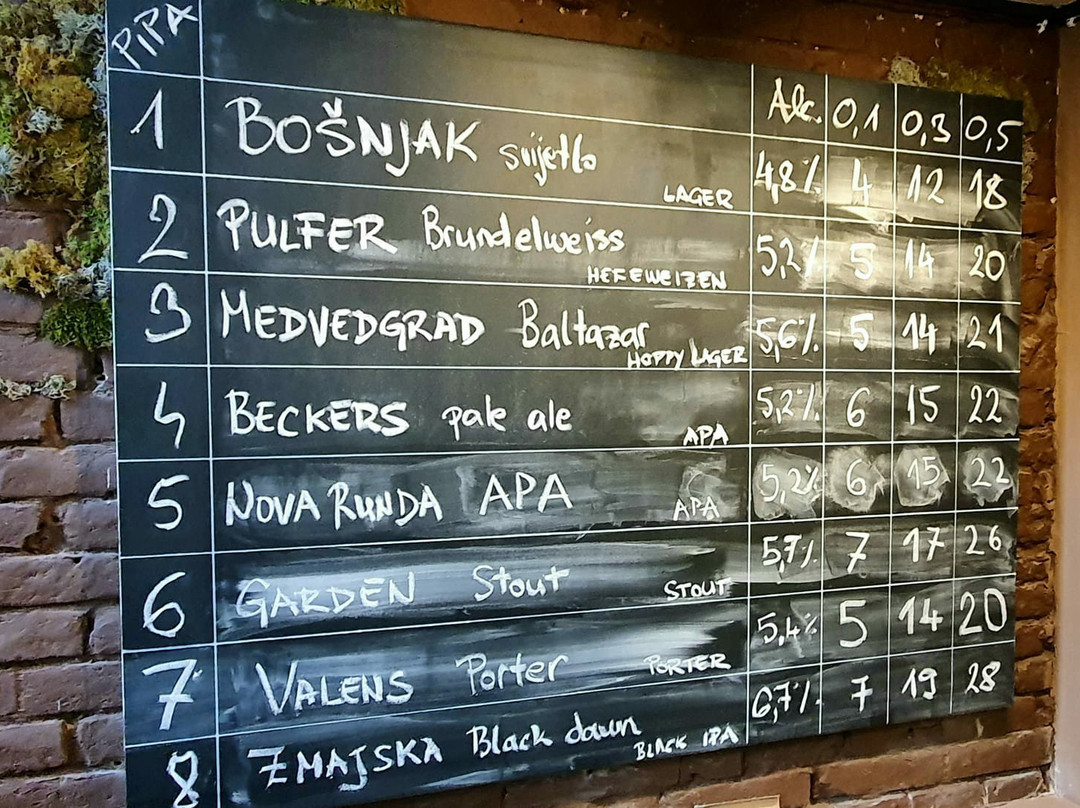 PIPA Alc. 0,1 0,3 0,5
1 BOŠNJAK svijetlo LAGER 4,8% 4 12 18
2 PULFER Brundelweiss HEFEWEIZEN 5,2% 5 14 20
3 MEDVEDGRAD Baltazar HOPPY LAGER 5,6% 5 14 21
4 BECKERS pale ale APA 5,2% 6 15 22
5 NOVA RUNDA APA APA 5,2% 6 15 22
6 GARDEN Stout STOUT 5,7% 7 17 26
7 VALENS Porter PORTER 5,4% 5 14 20
8 ZMAJSKA Black dawn BLACK IPA 6,7% 7 19 28